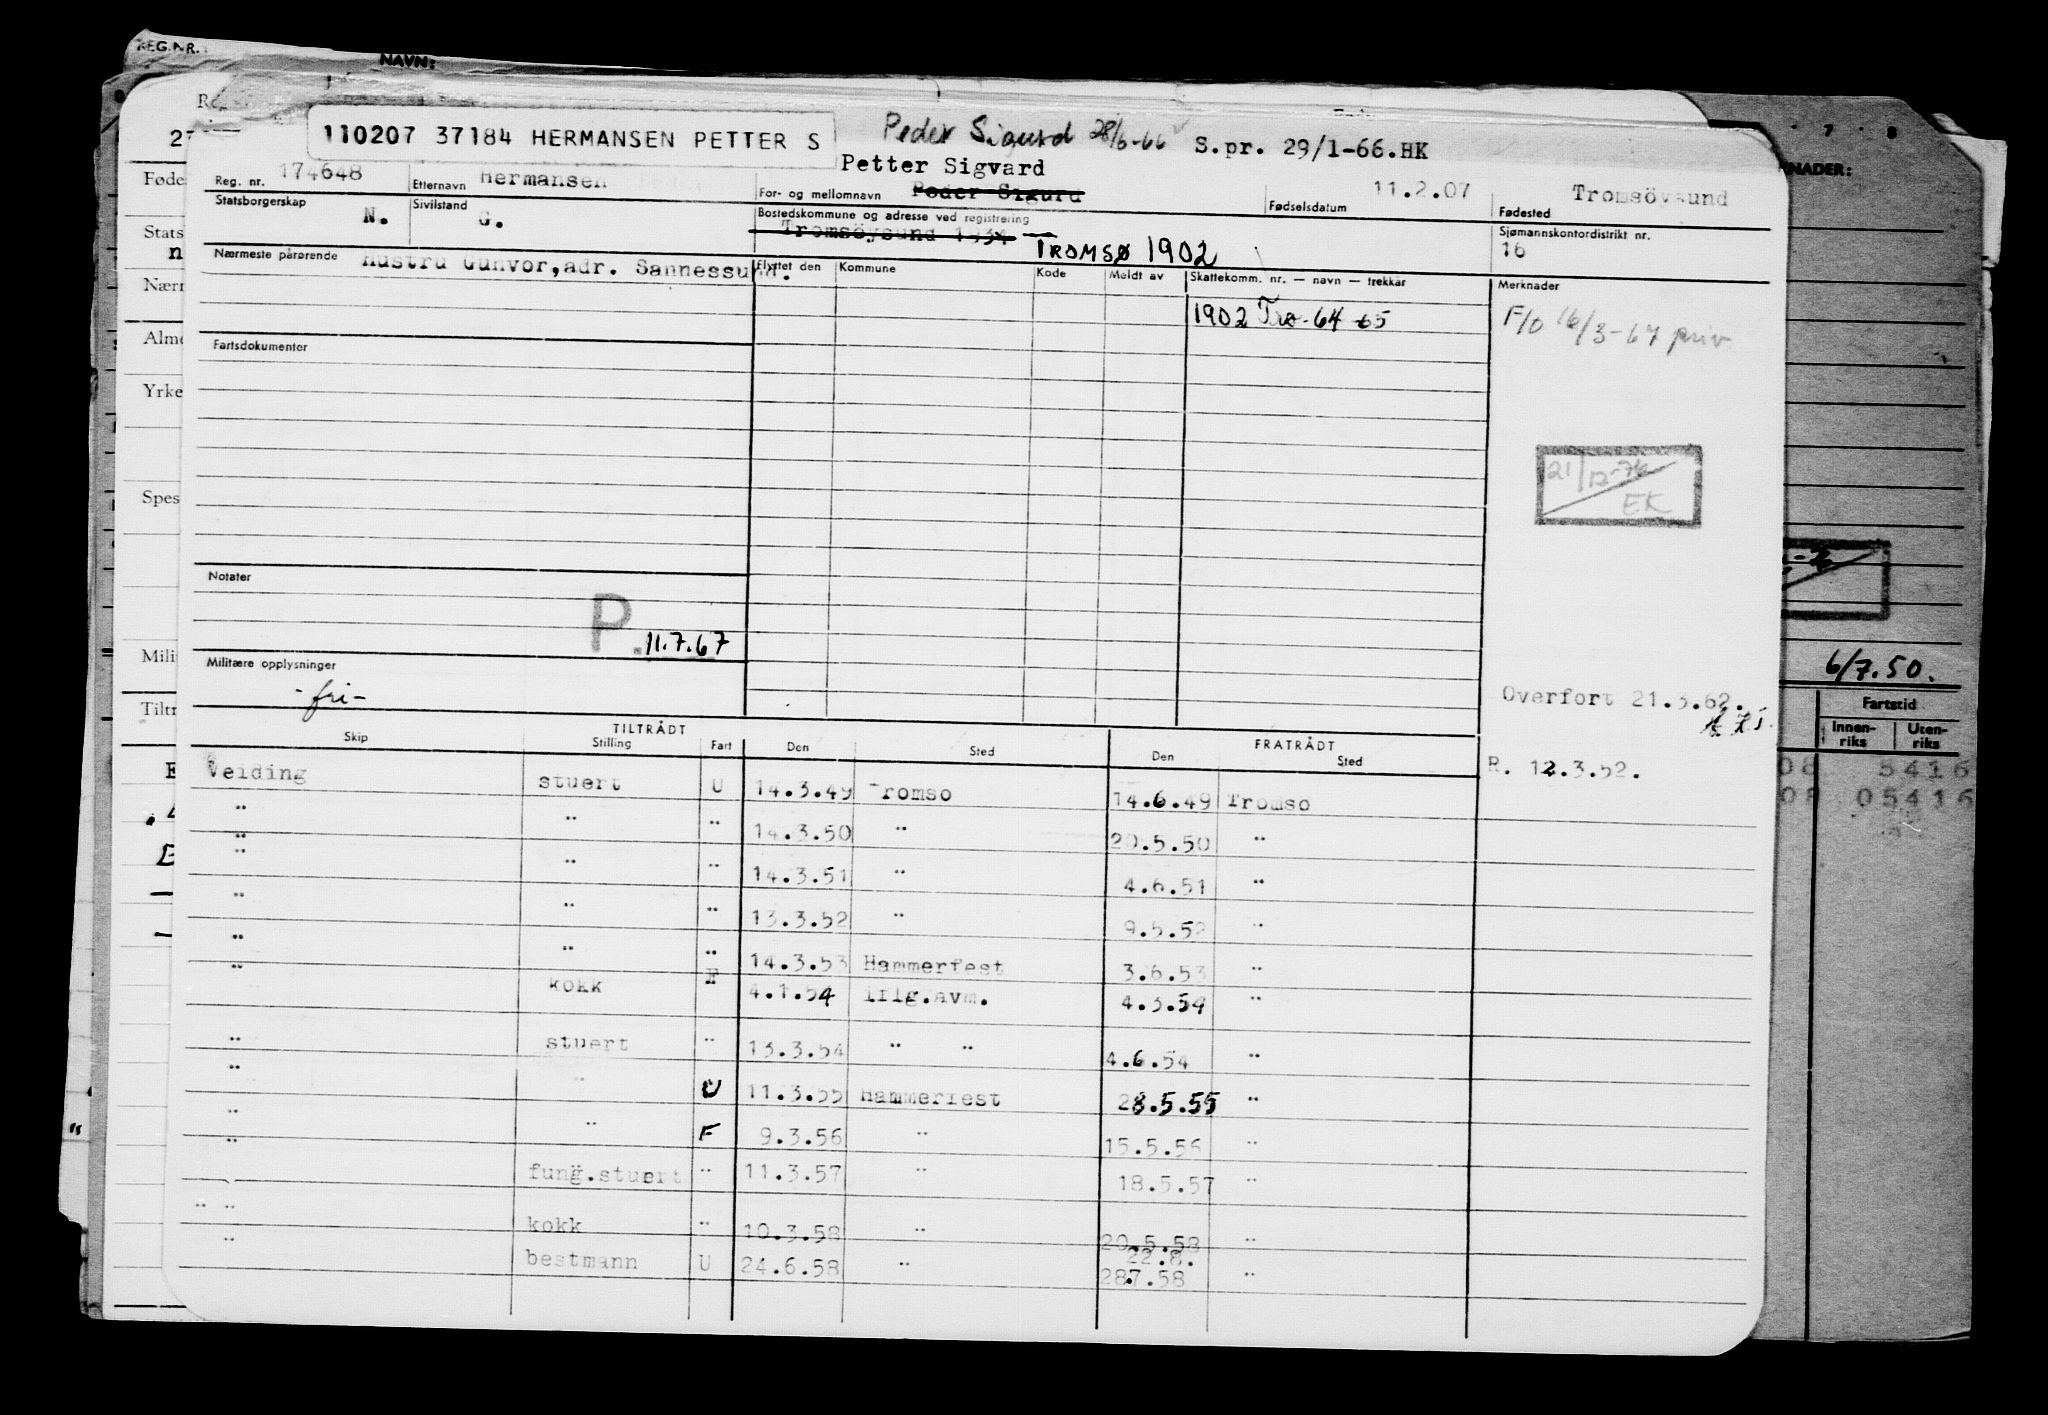 REG.NR.
NAVN:
110207 37184 HERMANSEN PETTER S
Peder Sigurd 28/6-66
S.pr. 29/1-66.HK
Petter Sigvard
Reg. nr. 174648 Etternavn Hermansen For- og mellomnavn Peder Sigurd Fødselsdatum 11.2.07 Fødested Tromsöysund
Statsborgerskap N. Sivilstand G. Bostedskommune og adresse ved registrering Tromsöysund 1934 TROMSØ 1902 Sjømannskontordistrikt nr. 16
Nærmeste pårørende Hustru Gunvor, adr. Sannessund.
Flyttet den Kommune Kode Meldt av Skattekomm. nr. — navn — trekkår Merknader
1902 Tro. 64-65
F/o 16/3-67 priv
Fartsdokumenter
21/12-76
EK
Notater
P. 11.7.67
Militære opplysninger
-fri-
Overfort 21.3.62.
TILTRÅDT FRATRÅDT
Skip Stilling Fart Den Sted Den Sted
R. 12.3.52.
Veiding stuert U 14.3.49 Tromso 14.6.49 Tromso
" " " 14.3.50 " 20.5.50 "
" " " 14.3.51 " 4.6.51 "
" " " 13.3.52 " 9.5.52 "
" " " 14.3.53 Hammerfest 3.6.53 "
" kokk F 4.1.54 iflg.avm. 4.3.54 "
" stuert " 13.3.54 " " 4.6.54 "
" " U 11.3.55 Hammerfest 28.5.55 "
" " F 9.3.56 " 15.5.56 "
" fung.stuert " 11.3.57 " 18.5.57 "
" " kokk " 10.3.58 " 20.5.58 "
22.8.
" bestmann U 24.6.58 " 287.58 "
Føde
Stats
n
Nærn
Alme
Yrke
Spes
Milit
Tiltr
7 8
KNADER:
6/7.50.
Fartstid
Innen-riks Uten-riks
08 5416
08 05416